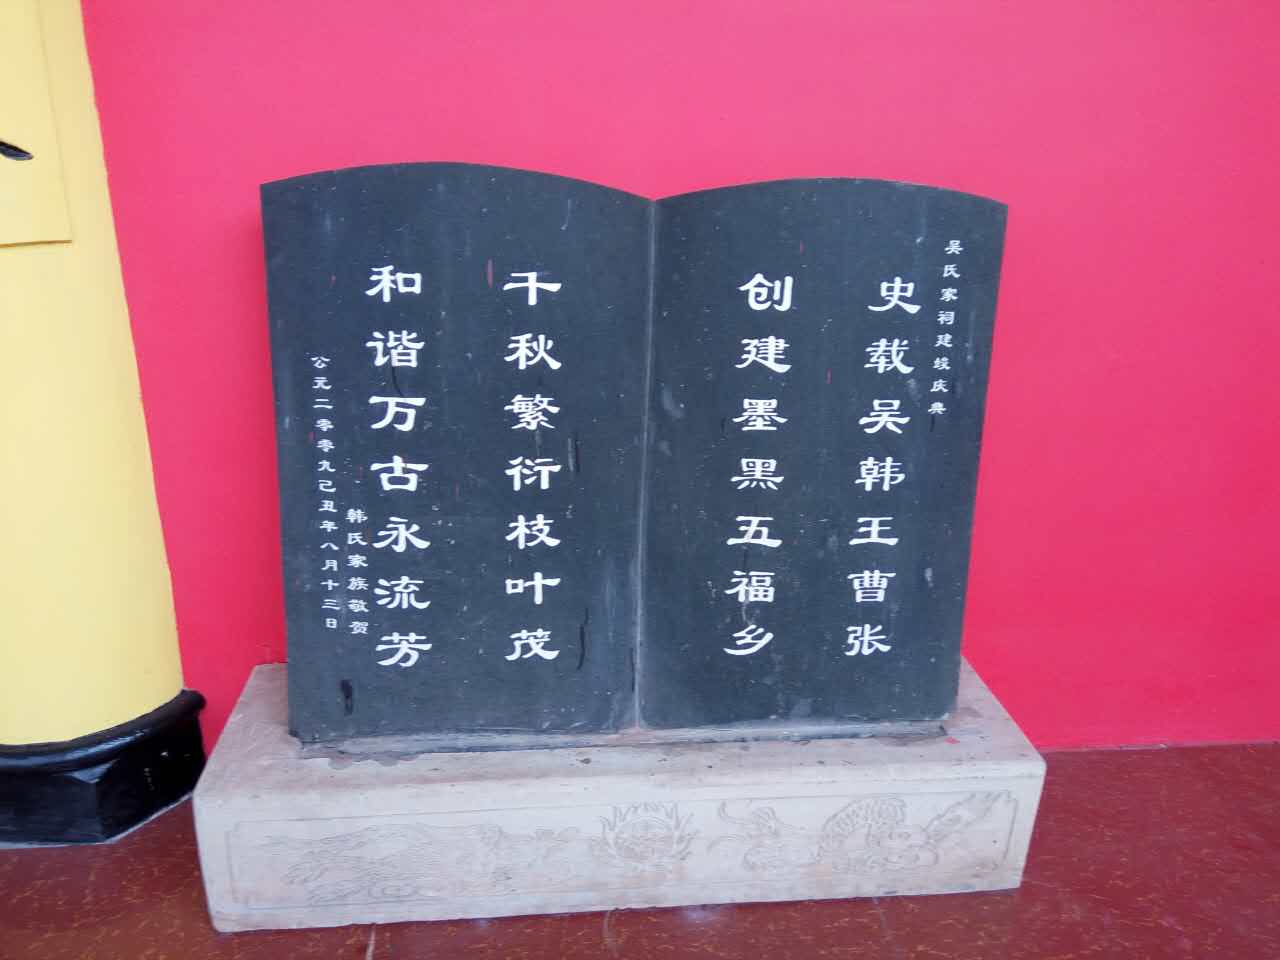 吴氏家祠建竣庆典
史载吴韩王曹张
创建墨黑五福乡
千秋繁衍枝叶茂
和谐万古永流芳
韩氏家族敬贺
公元二零零九己丑年八月十三日